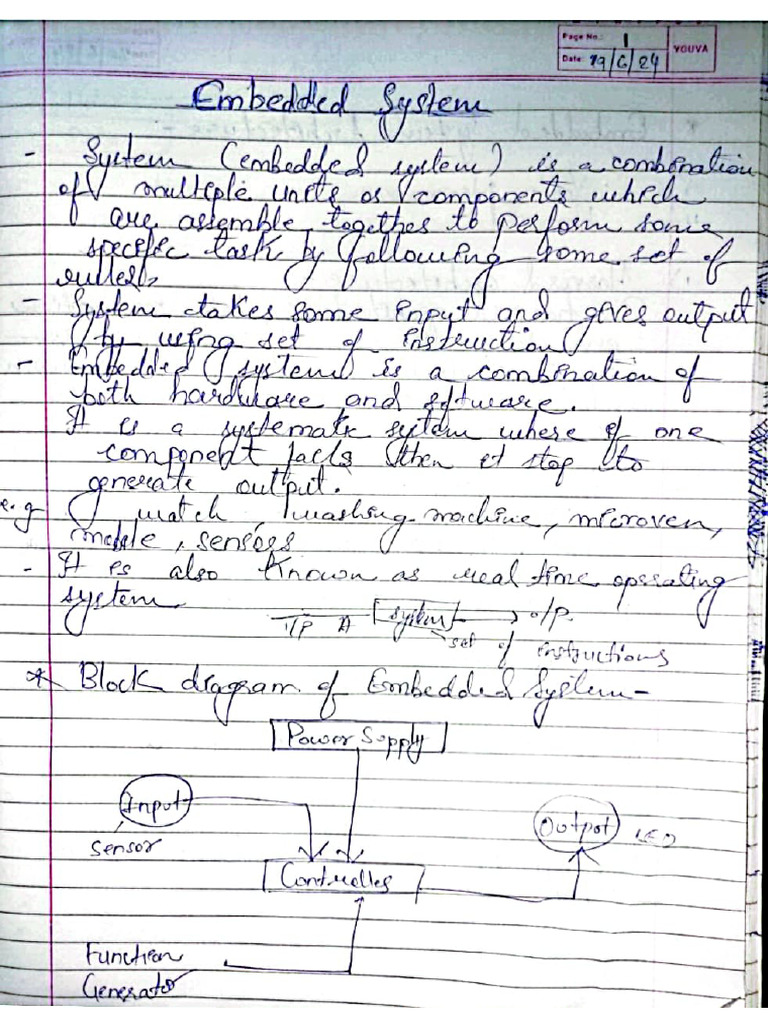 Page No.: 1
Date: 19/6/24
YOUVA
Embedded System
- System (embedded system) is a combination
of multiple units or components which
are assemble together to perform some
specific task by following some set of
rules.
- System takes some input and gives output
by using set of instruction
- Embedded system is a combination of
both hardware and software.
It is a systematic system where if one
component fails then it stop to
generate output.
e.g watch washing machine, microven,
mobile, sensors
- It is also known as real time operating
system
I/P system o/p.
set of instructions
* Block diagram of Embedded System-
Power Supply
Input
Output LED
Sensor
Controller
Function
Generator